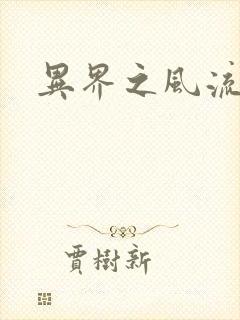 異界之風流
賈樹新